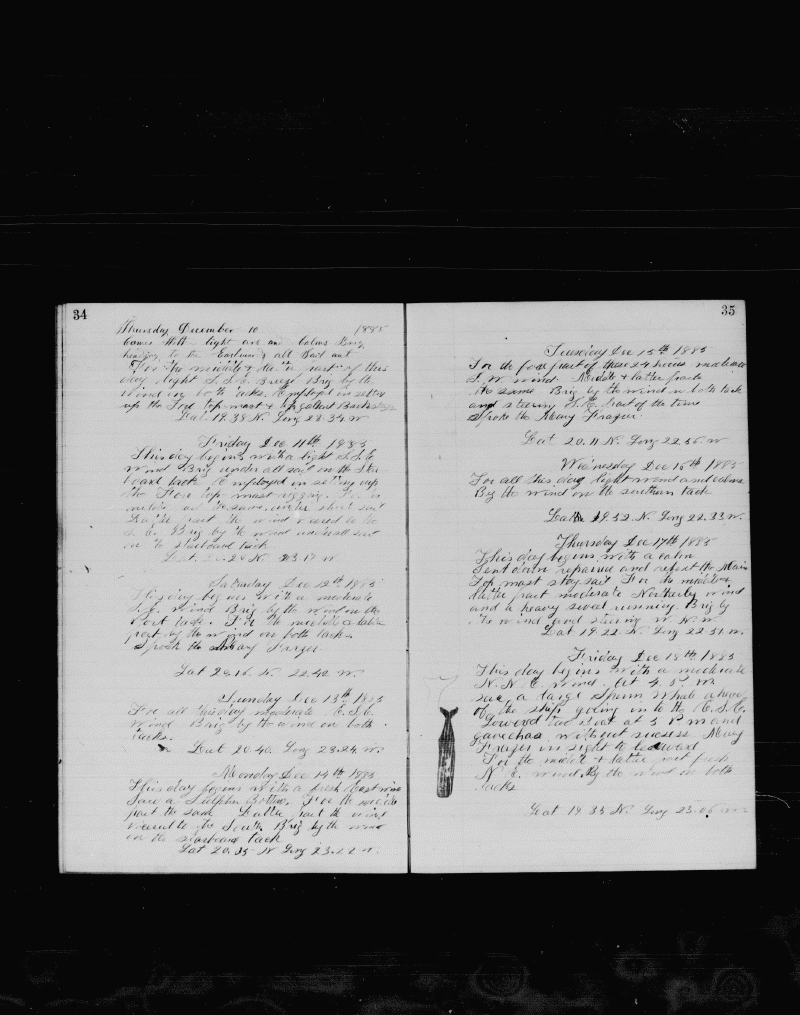 34
Thursday December 10 1885
Comes with light air and Calms Brig
heading to the Eastward all Sail out
For the middle & latter part of this
day light S.S.E. Breeze Brig by the
Wind on both tacks. Employed in setting
up the Fore top mast & top gallant Backstays
Lat 19.38 N. Long 22.34 W
Friday Dec 11th 1885
This day begins with a light S.S.E.
Wind Brig under all sail on the Star
board tack Employed in setting up
the Fore top mast rigging. For
middle the same under short sail
Latter part the wind veered to the
S.E. Brig by the wind under all sail
on the starboard tack
Lat. N 23.17 W
Saturday Dec 12th 1885
This day begins with a moderate
S.E. Wind Brig by the wind on the
Port tack. For the middle & latter
part by the wind on both tacks
Spoke the Mary Frazer
Lat 20.16 N. 22.42 W.
Sunday Dec 13th 1885
For all this day moderate E.S.E.
Wind Brig by the wind on both
tacks.
Lat 20.40. Long 23.24 W.
Monday Dec 14th 1885
This day begins with a fresh East wind
Saw a Sulphur Bottom. For the middle
part the same Latter part the wind
veered to the South Brig by the wind
on the starboard tack
Lat 20.35 N Long 23. W.
35
Tuesday Dec 15th 1885
For the fore part of these 24 hours moderate
S.W. wind. Middle & latter parts
the same Brig by the wind on both tack
and steering S.E. Part of the time
Spoke the Mary Frazier
Lat 20.11 N. Long 22.56 W
Wednesday Dec 16th 1885
For all this day light wind and calms
By the wind on the southern tack
Lat 19.52 N. Long 22.33 W.
Thursday Dec 17th 1885
This day begins with a calm
Sent down repaired and refest the Main
Top mast stay sail For the middle &
latter part moderate Northerly wind
and a heavy swell running. Brig by
the wind and steering W.N.W.
Lat 19.22 N. Long 22.51 W.
Friday Dec 18th 1885
This day begins with a moderate
N.N.E. wind. At 4 P M
saw a large Sperm Whale ahead
of the ship, going in to the E.S.E.
Lowered two boat at 5 P m and
gave chas without success Mary
Frazer in sight to leeward
For the middle & latter part fresh
N.E. wind By the wind on both
tacks
Lat 19.35 N. Long 23.06 W